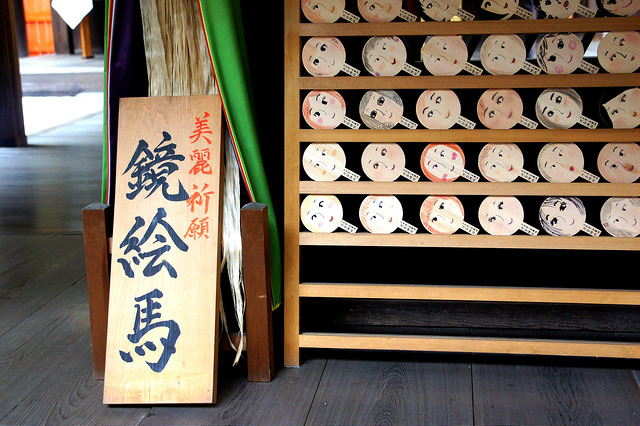 美麗祈願
鏡絵馬